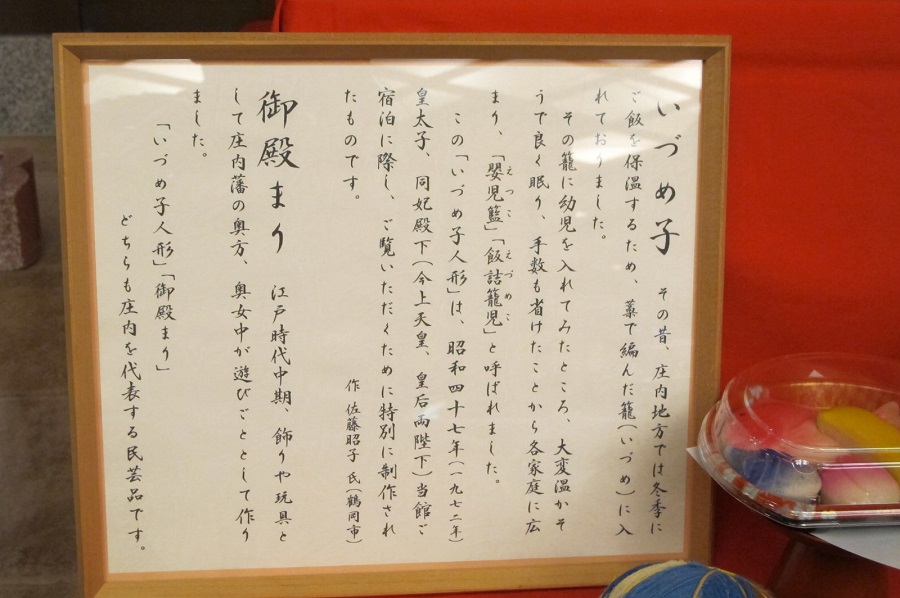 いづめ子　その昔、庄内地方では冬季に
ご飯を保温するため、藁で編んだ籠(いづめ)に入
れておりました。
その籠に幼児を入れてみたところ、大変温かそ
うで良く眠り、手数も省けたことから各家庭に広
まり、「嬰児籃」「飯詰籠児」と呼ばれました。
えつこ
えづめこ
この「いづめ子人形」は、昭和四十七年(一九七二年)
皇太子、同妃殿下(今上天皇、皇后両陛下)当館ご
宿泊に際し、ご覧いただくために特別に制作され
たものです。
作 佐藤昭子氏(鶴岡市)
御殿まり　江戸時代中期、飾りや玩具と
して庄内藩の奥方、奥女中が遊びごととして作り
ました。
「いづめ子人形」「御殿まり」
どちらも庄内を代表する民芸品です。